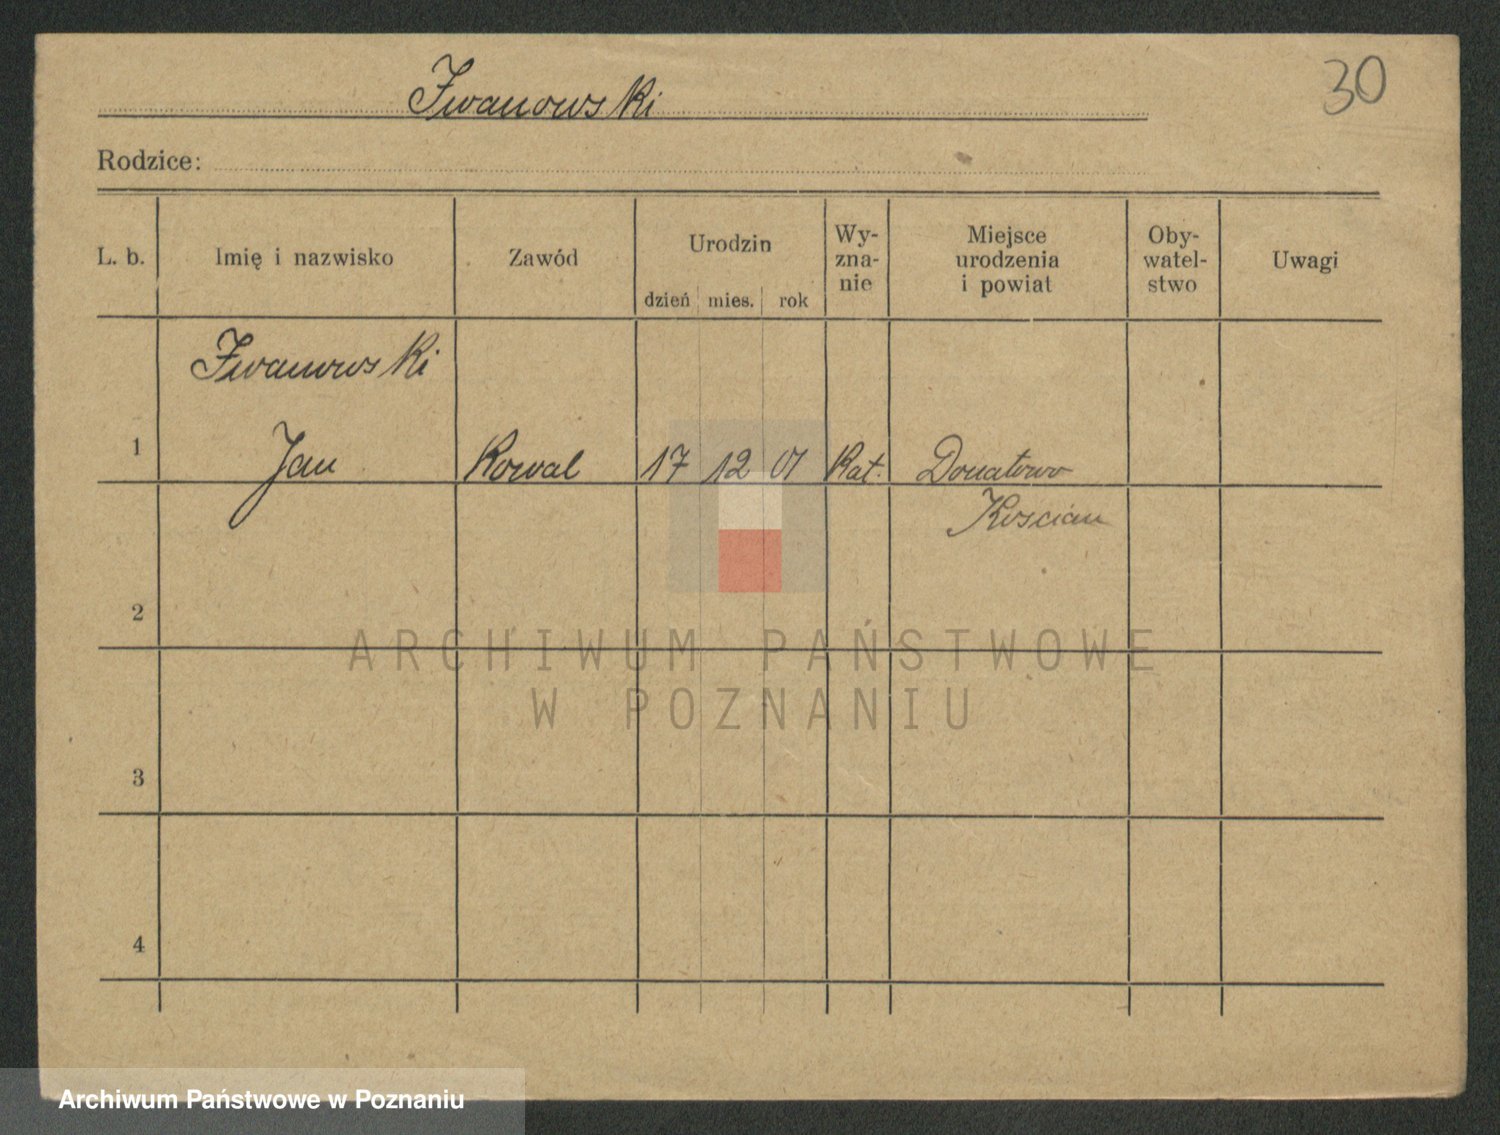 Iwanowski
30
Rodzice:
L. b.
Imię i nazwisko
Zawód
Urodzin
dzień mies. rok
Wy-
zna-
nie
Miejsce
urodzenia
i powiat
Oby-
watel-
stwo
Uwagi
Iwanowski
1 Jan Kowal 17 12 01 Kat. Donatowo
Koscian
2
ARCHIWUM PAŃSTWOWE
W POZNANIU
3
4
Archiwum Państwowe w Poznaniu